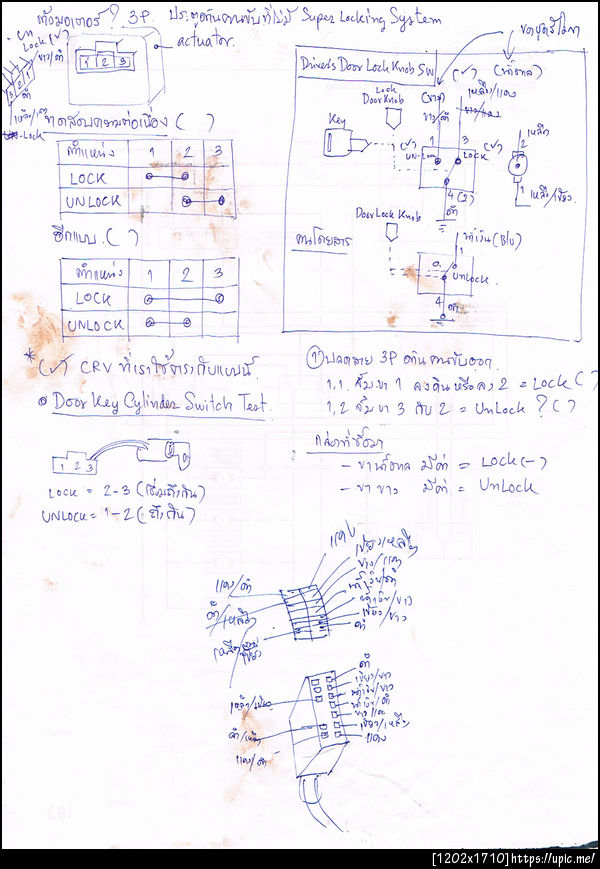 3P. ประตูด้านคนขับที่ไม่มี Super Locking System
actuator.
UN Lock (✓)
ขาว/ดำ
1 2 3
3 2 1
ดำ
Lock
ทดสอบความต่อเนื่อง ( )
ตำแหน่ง 1 2 3
LOCK
UNLOCK
อีกแบบ ( )
ตำแหน่ง 1 2 3
LOCK
UNLOCK
* (✓) CRV ที่เราใช้
Door Key Cylinder Switch Test.
1 2 3
LOCK = 2-3 (เชื่อมถึงกัน)
UNLOCK = 1-2 (ถึงกัน)
Driver's Door Lock Knob SW
(✓) (น้ำตาล)
Lock
Door Knob
(ขาว)
ขาว/ดำ
เหลือง/แดง
Key
1 (✓)
3
UN-Lock
LOCK
4 (2)
ดำ
2
1
Door Lock Knob
คนโดยสาร
น้ำเงิน (Blu)
1
UNLOCK
4
ดำ
① ปลดสาย 3P ด้านคนขับออก
1.1. จั้มขา 1 ลงดินหรือลง 2 = Lock ( )
1.2 จั้มขา 3 กับ 2 = UnLock ? ( )
กล่องที่ซื้อมา
- ขาน้ำตาล มีค่า = Lock (-)
- ขา ขาว มีค่า = UnLock
แดง
เขียว/เหลือง
ขาว/แดง
น้ำเงิน/ดำ
น้ำเงิน/ขาว
เขียว/ขาว
ดำ
แดง/ดำ
ดำ/เหลือง
ดำ
เขียว/ขาว
น้ำเงิน/ขาว
น้ำเงิน/ดำ
ขาว/แดง
เขียว/เหลือง
แดง
เหลือง/เขียว
ดำ/เหลือง
แดง/ดำ
[1202x1710]https://upic.me/